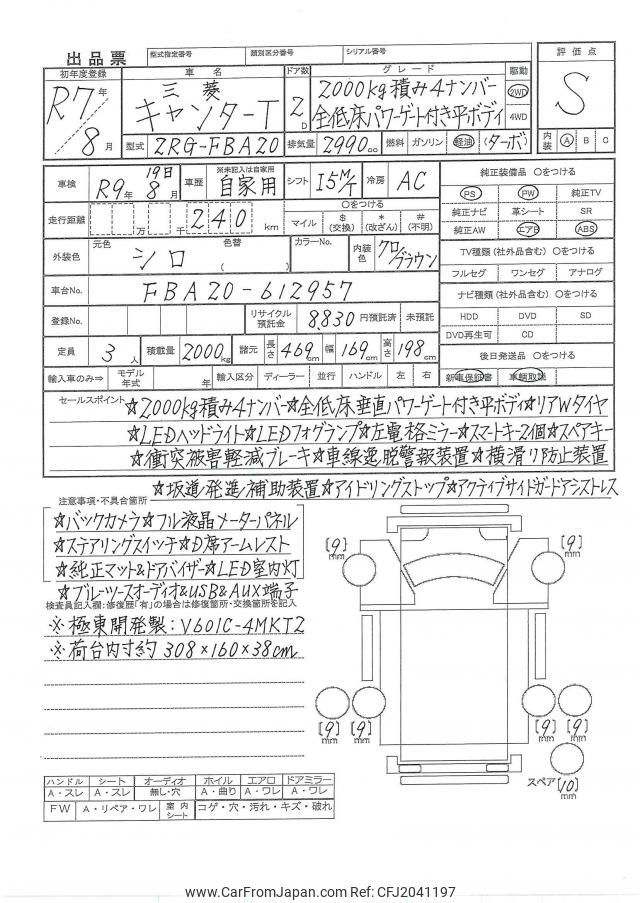 出品票 型式指定番号 類別区分番号 シリアル番号
初年度登録 車名 ドア数 グレード 駆動 評価点
R7年 8月 三菱 キャンターT 2D 2000kg積み4ナンバー 2WD S
全低床パワーゲート付き平ボディ 4WD
型式 2RG-FBA20 排気量 2990cc 燃料 ガソリン 軽油 (ターボ) 内装 A B C
車検 R9年 19日 8月 車歴 ※未記入は自家用 自家用 シフト I5M/T 冷房 AC 純正装備品 ○をつける
PS PW 純正TV
走行距離 万 千 240 km ○をつける マイル $(交換) *(改ざん) #(不明) 純正ナビ 革シート SR
純正AW エアB ABS
外装色 元色 シロ 色替 ( ) カラーNo. 内装色 クロ/ブラウン TV種類(社外品含む) ○をつける
フルセグ ワンセグ アナログ
車台No. FBA20-612957 ナビ種類(社外品含む) ○をつける
登録No. リサイクル預託金 8,830 円預託済 未預託 HDD DVD SD
DVD再生可 CD
定員 3人 積載量 2000kg 諸元 長さ 469cm 幅 169cm 高さ 198cm 後日発送品 ○をつける
輸入車のみ⇒ モデル年式 年 輸入区分 ディーラー 並行 ハンドル 左 右 新車保証書 車輌取説
セールスポイント ☆2,000kg積み4ナンバー☆全低床垂直パワーゲート付き平ボディ☆リアWタイヤ
☆LEDヘッドライト☆LEDフォグランプ☆左電格ミラー☆スマートキー2個☆スペアキー
☆衝突被害軽減ブレーキ☆車線逸脱警報装置☆横滑り防止装置
☆坂道発進補助装置☆アイドリングストップ☆アクティブサイドガードアシストレス
注意事項・不具合箇所
☆バックカメラ☆フル液晶メーターパネル
☆ステアリングスイッチ☆D席アームレスト
☆純正マット&ドアバイザー☆LED室内灯
☆ブルーツースオーディオ&USB&AUX端子
検査員記入欄:修復歴「有」の場合は修復箇所・交換箇所を記入
※極東開発製:V601C-4MKT2
※荷台内寸約 308×160×38cm
[9]mm [9]mm
[9]mm [9]mm [9]mm [9]mm
スペア [10]mm
ハンドル シート オーディオ ホイル エアロ ドアミラー
A・スレ A・スレ 無し・穴 A・曲り A・ワレ A・ワレ
FW A・リペア・ワレ 室内シート コゲ・穴・汚れ・キズ・破れ
www.CarFromJapan.com Ref: CFJ2041197